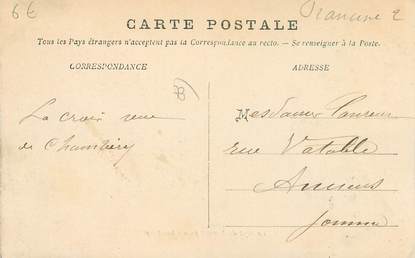 6€
Francine 2
CARTE POSTALE
Tous les Pays étrangers n'acceptent pas la Correspondance au recto. – Se renseigner à la Poste.
CORRESPONDANCE
ADRESSE
La croix vue
de Chambéry
Mesdames
rue Vatable
Amiens
Somme